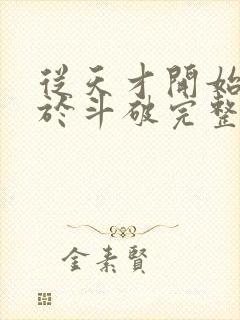 從天才開始
於斗破完整
金素賢